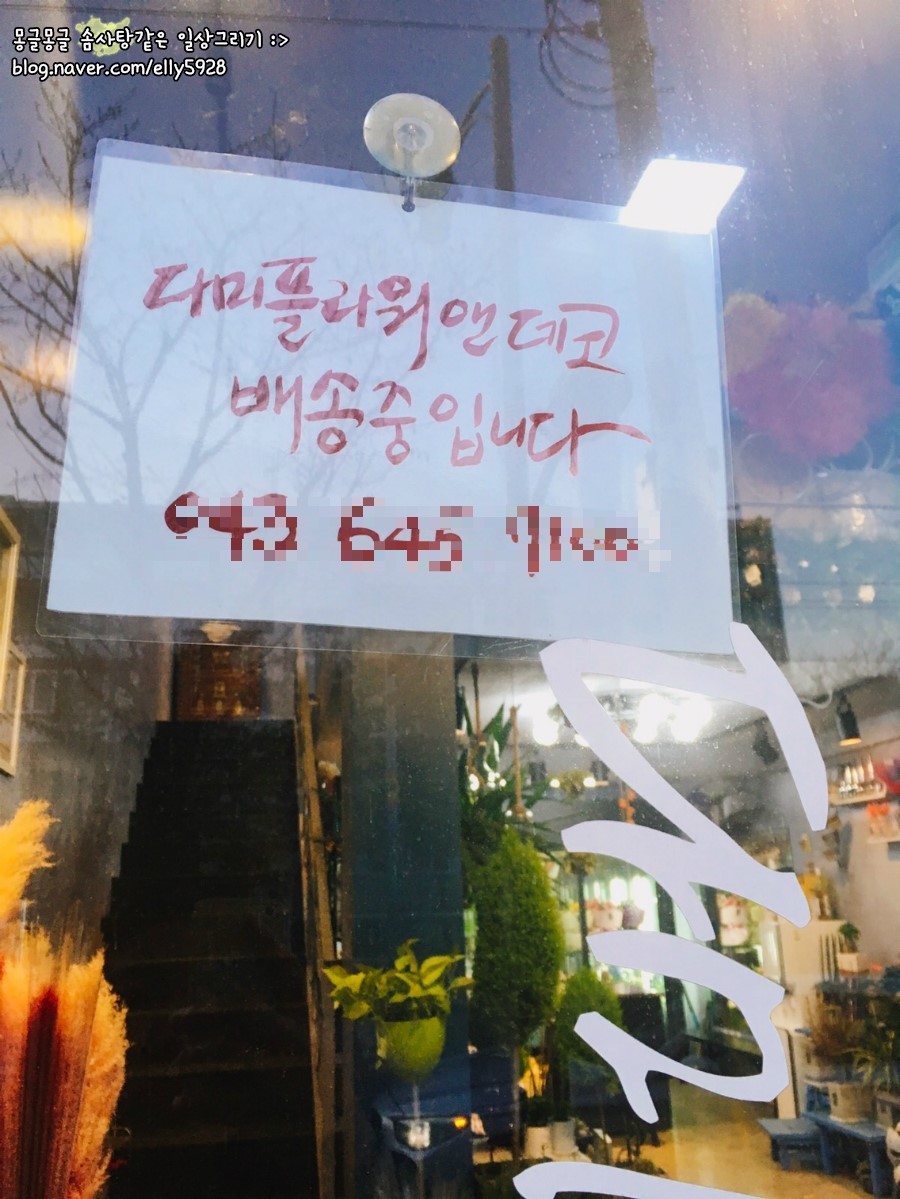 몽글몽글 솜사탕같은 일상그리기 :>
blog.naver.com/elly5928
다미플라워앤데코
배송중입니다